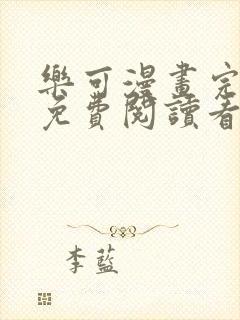 樂可漫畫完
免費閱讀看
李藍